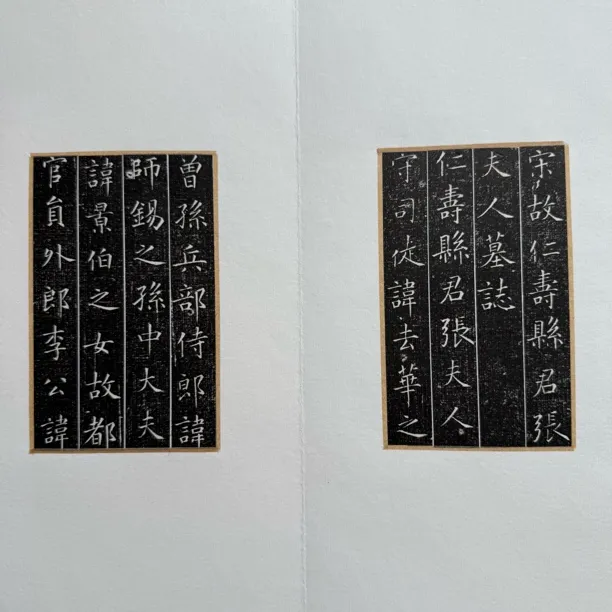 宋故仁壽縣君張
夫人墓誌
仁壽縣君張夫人
守司徒諱去華之
曽孫兵部侍郎諱
師錫之孫中大夫
諱景伯之女故都
官貟外郎李公諱